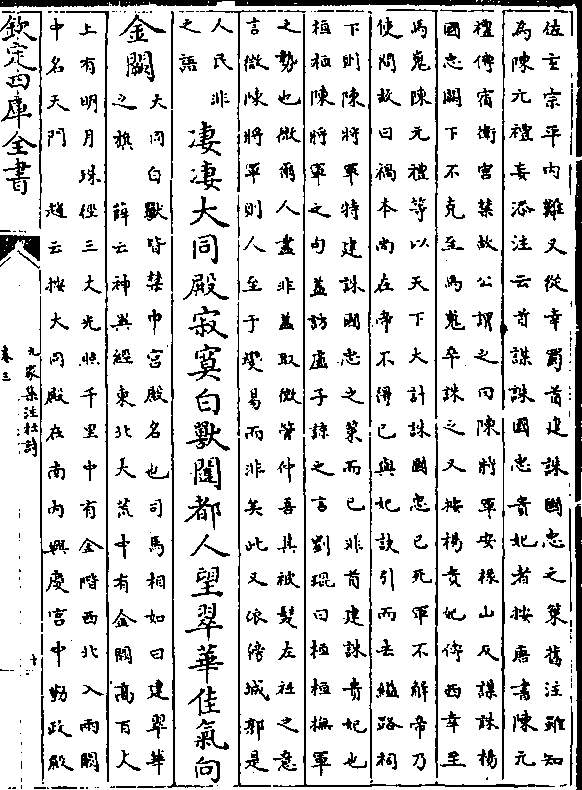 佐玄宗平内難又從幸蜀首建誅國忠之策舊注雖知
為陳元禮妄添注云首謀誅國忠貴妃者按唐書陳元
禮傳宿衛宮禁故公謂之曰陳將軍安禄山反謀誅楊
國忠闕下不克至馬嵬卒誅之又按楊貴妃傳西幸至
馬嵬陳元禮等以天下大計誅國忠已死軍不解帝乃
使問故曰禍本尚在帝不得已與妃訣引而去縊路祠
下則陳將軍特建誅國忠之策而已非首建誅貴妃也
桓桓陳將軍之句蓋訪盧子諒之言劉琨曰桓桓撫軍
之勢也微爾人盡非蓋取微管仲吾其被髮左衽之意
言微陳將軍則人至于變易而非矣此又依傍城郭是
人民非
之語
凄凄大同殿寂寞白獸闥都人望翠華佳氣向
金闕
大同白獸皆禁中宮殿名也司馬相如曰建翠華
之旗 薛云神異經東北大荒中有金闕高百丈
上有明月珠徑三丈光照千里中有金階西北入兩闕
中名天門 趙云按大同殿在南内興慶宮中勤政殿
欽定四庫全書
九家集注杜詩
卷三
十